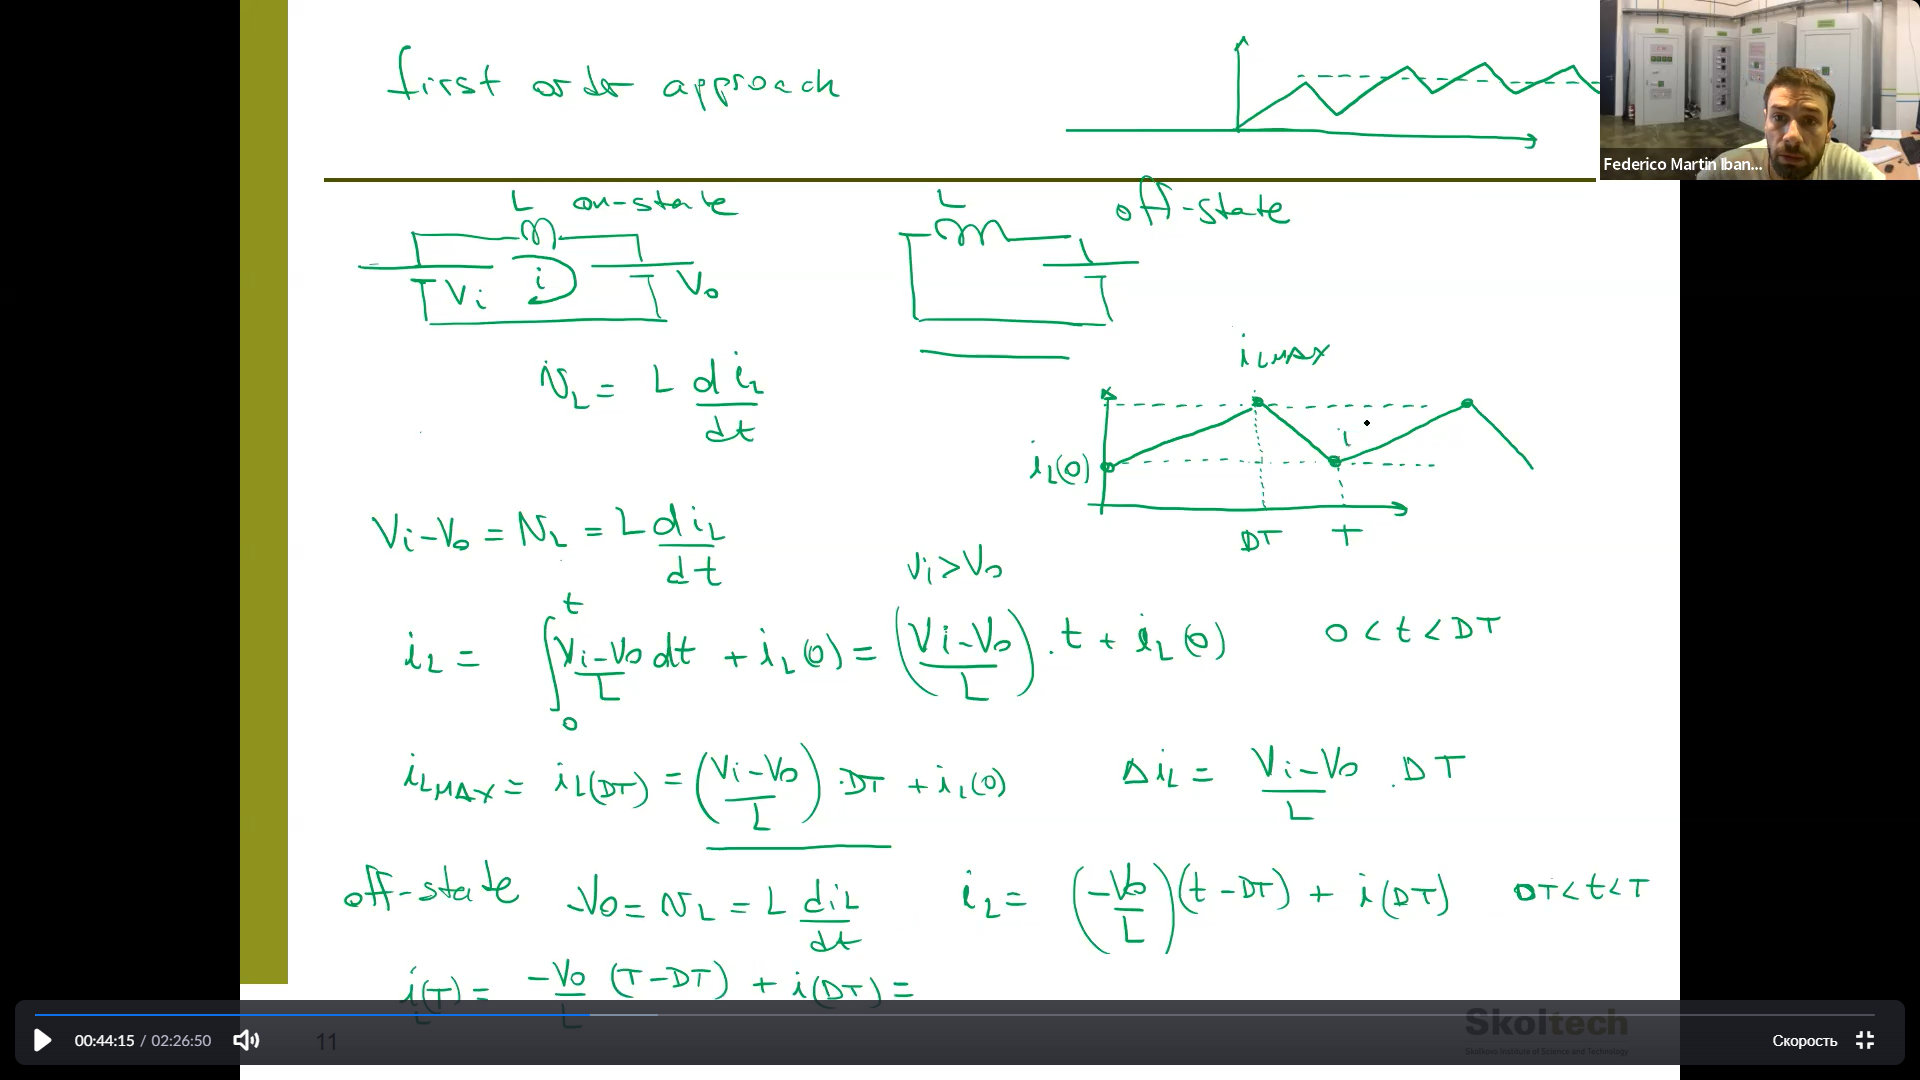 first order approach
Federico Martin Iban...
L on-state
L off-state
Vi i Vo
iLMAX
vL = L diL/dt
iL(0) i
DT T
Vi-Vo = vL = L diL/dt
Vi > Vo
iL = ∫₀ᵗ (Vi-Vo)/L dt + iL(0) = ((Vi-Vo)/L) . t + iL(0) 0 < t < DT
iLMAX = iL(DT) = ((Vi-Vo)/L) . DT + iL(0) ΔiL = (Vi-Vo)/L . DT
off-state -Vo = vL = L diL/dt iL = (-Vo/L)(t - DT) + i(DT) DT < t < T
iL(T) = -Vo/L (T-DT) + i(DT) =
00:44:15 / 02:26:50
11
Skoltech
Skolkovo Institute of Science and Technology
Скорость